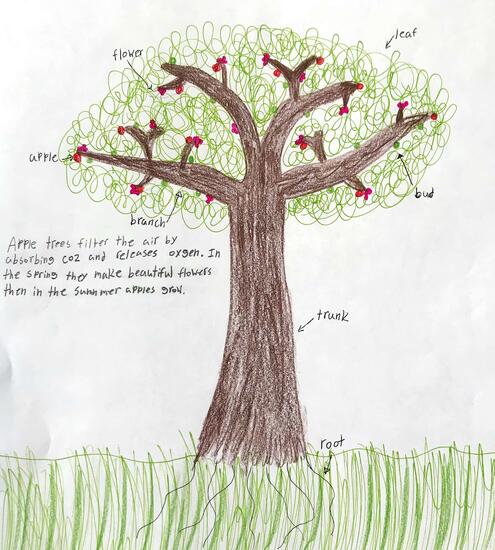 leaf
flower
apple
bud
branch
Apple trees filter the air by
absorbing co2 and releases oxgen. In
the spring they make beautiful flowers
then in the summer apples grow.
trunk
root